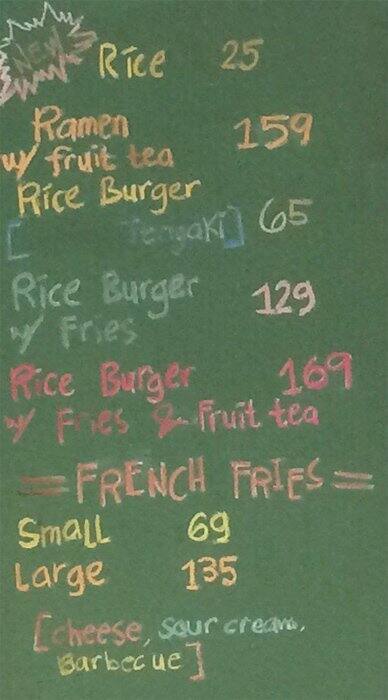 NEW Rice 25
Ramen 159
w/ fruit tea
Rice Burger
[ Teriyaki] 65
Rice Burger 129
w/ Fries
Rice Burger 169
w/ Fries & Fruit tea
= FRENCH FRIES =
Small 69
Large 135
[cheese, sour cream,
Barbecue]